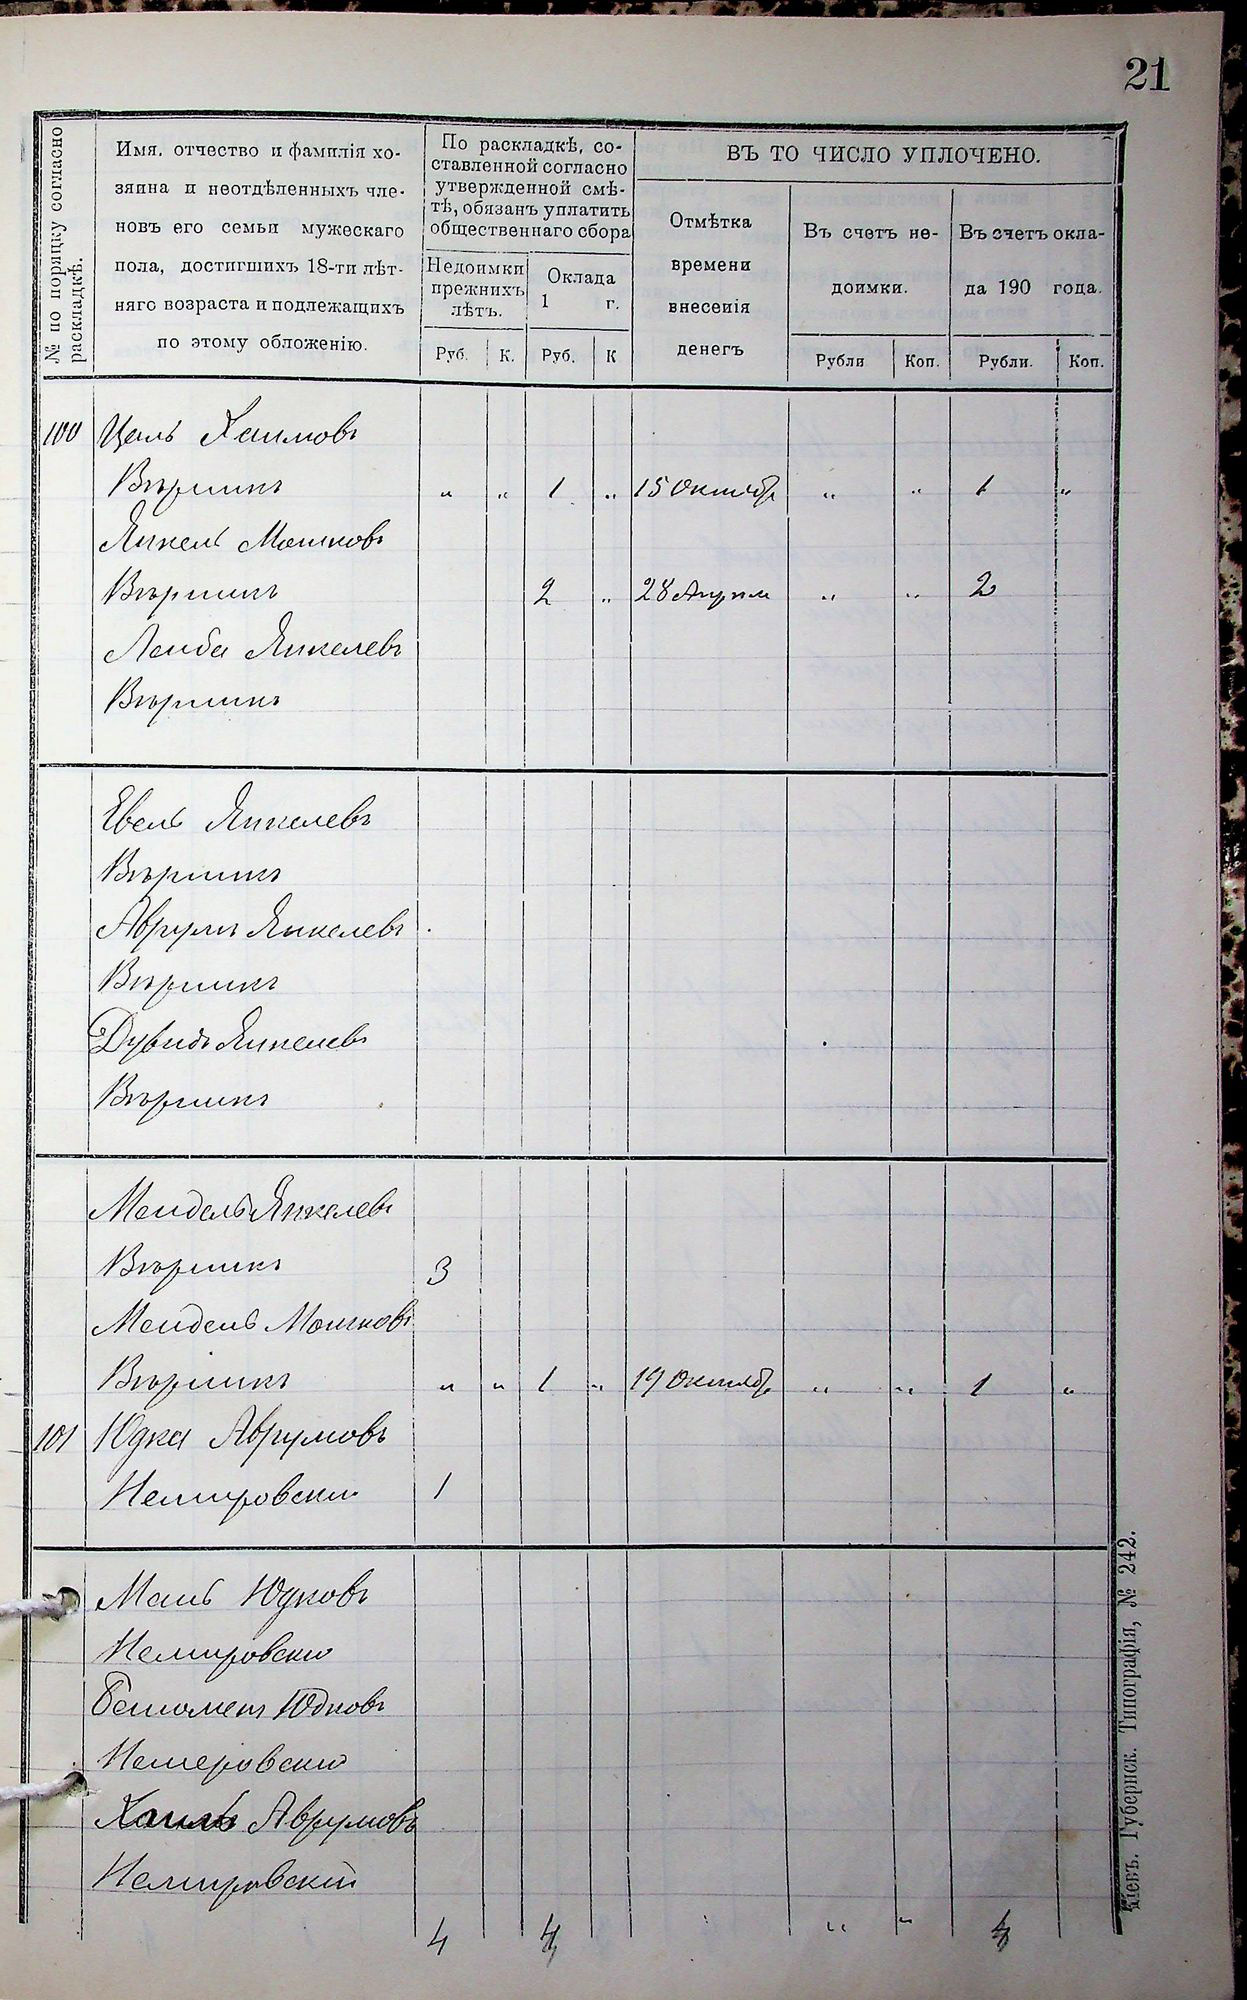 21
№ по порядку согласно раскладкѣ.
Имя, отчество и фамилія хо-
зяина и неотдѣленныхъ чле-
новъ его семьи мужескаго
пола, достигшихъ 18-ти лѣт-
няго возраста и подлежащихъ
по этому обложенію.
По раскладкѣ, со-
ставленной согласно
утвержденной смѣ-
тѣ, обязанъ уплатить
общественнаго сбора
Недоимки
прежнихъ
лѣтъ.
Оклада
1 г.
Руб. К. Руб. К
ВЪ ТО ЧИСЛО УПЛОЧЕНО.
Отмѣтка
времени
внесенія
денегъ
Въ счетъ не-
доимки.
Въ счетъ окла-
да 190 года.
Рубли Коп. Рубли. Коп.
100 Цаль Хаимовъ
Вѣрникъ „ „ 1 „ 15 Октяб „ „ 1 „
Янкель Мошковъ
Вѣрникъ 2 „ 28 Апрѣля „ „ 2
Лейба Янкелевъ
Вѣрникъ
Евель Янкелевъ
Вѣрникъ
Аврумъ Янкелевъ
Вѣрникъ
Дувидъ Янкелевъ
Вѣрникъ
Мендель Янкелевъ
Вѣрникъ 3
Мендель Мошковъ
Вѣрникъ „ „ 1 „ 19 Октяб „ „ 1 „
101 Юдка Аврумовъ
Немировски 1
Юдковъ
Немировски
Юдковъ
Немеровски
Аврумовъ
Немировскій
4 4 „ „ 4
Кіевъ. Губернск. Типографія, № 242.